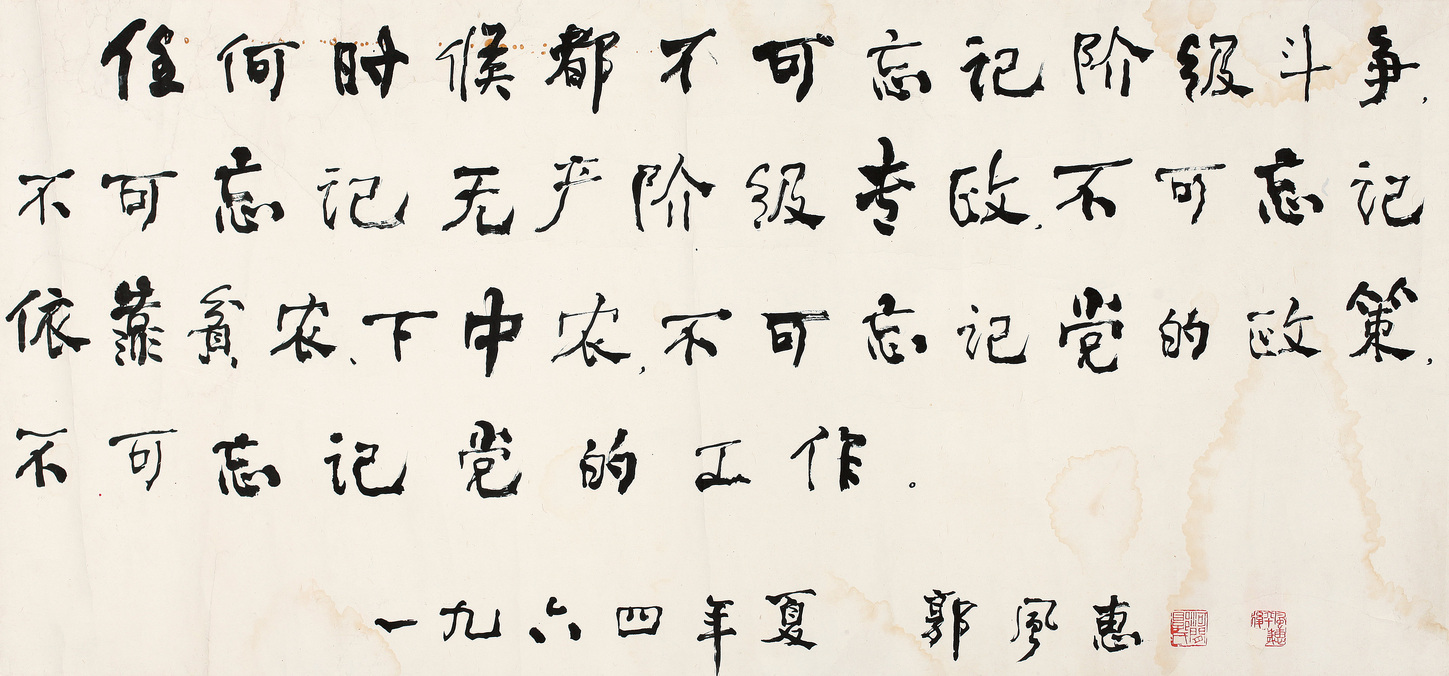 任何时候都不可忘记阶级斗争,
不可忘记无产阶级专政,不可忘记
依靠貧农、下中农,不可忘记党的政策,
不可忘记党的工作。
一九六四年夏 郭風惠